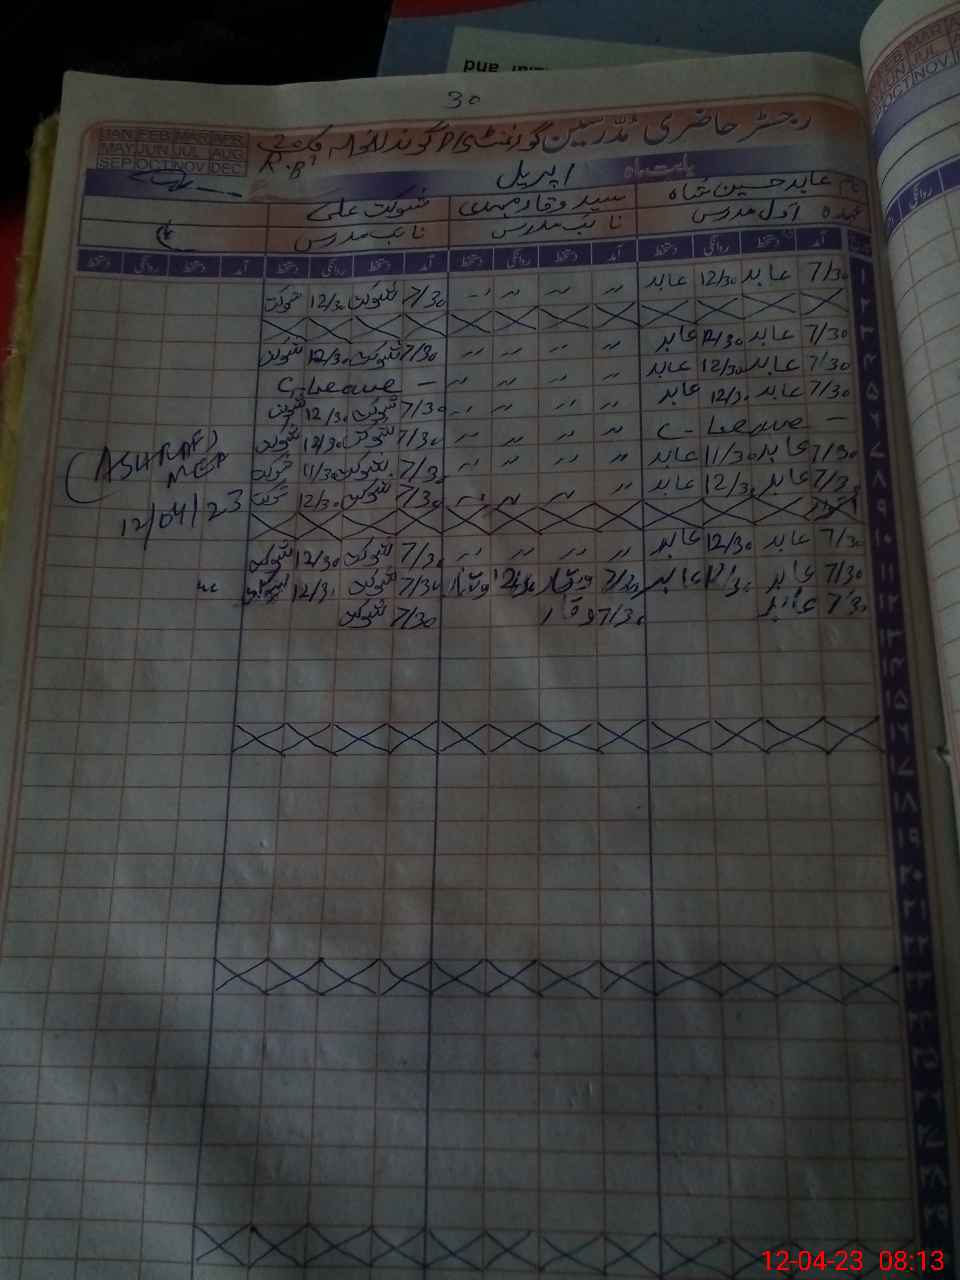 30
رجسٹر حاضری مدرسین گورنمنٹ
JAN FEB MAR APR
MAY JUN JUL AUG
SEP OCT NOV DEC
بابت ماہ اپریل
نام عابد حسین شاہ سید وقار مہدی شوکت علی
عہدہ اول مدرس نائب مدرس نائب مدرس
آمد دستخط روانگی دستخط آمد دستخط روانگی دستخط آمد دستخط روانگی دستخط آمد دستخط روانگی دستخط
۱ 7/30 عابد 12/30 عابد 〃 〃 〃 〃 7/30 شوکت 12/30 شوکت
۲
۳ 7/30 عابد 12/30 عابد 〃 〃 〃 〃 7/30 شوکت 12/30 شوکت
۴ 7/30 عابد 12/30 عابد 〃 〃 〃 〃 — C-Leave
۵ 7/30 عابد 12/30 عابد 〃 〃 〃 〃 7/30 شوکت 12/30 شوکت
۶ C-Leave — 〃 〃 〃 〃 7/30 شوکت 12/30 شوکت
۷ 7/30 عابد 11/30 عابد 〃 〃 〃 〃 7/30 شوکت 11/30 شوکت
۸ 7/30 عابد 12/30 عابد 〃 〃 〃 〃 7/30 شوکت 12/30 شوکت
۹ اتوار
۱۰ 7/30 عابد 12/30 عابد 〃 〃 〃 〃 7/30 شوکت 12/30 شوکت
۱۱ 7/30 عابد 12/30 عابد 7/30 وقار 12/30 وقار 7/30 شوکت 12/30 شوکت
۱۲ 7/30 عابد 7/30 وقار 7/30 شوکت
(ASHRAF)
MEA
12/04/23
۱۳
۱۴
۱۵
۱۶
۱۷
۱۸
۱۹
۲۰
۲۱
۲۲
۲۳
۲۴
۲۵
۲۶
۲۷
۲۸
۲۹
12-04-23 08:13